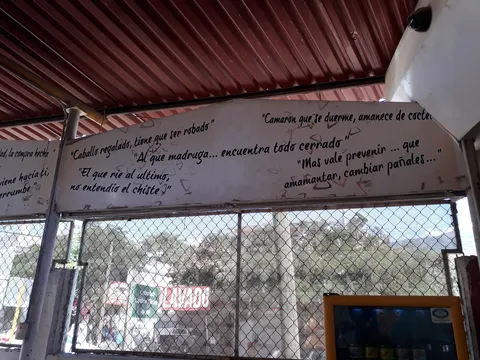 la compra hecha
viene hacia ti,
"Caballo regalado, tiene que ser robado"
"El que ríe al ultimo,
no entendío el chiste"
"Al que madruga... encuentra todo cerrado"
"Camarón que se duerme, amanece de
"Mas vale prevenir ... que
amamantar, cambiar pañales..."
LAVADO